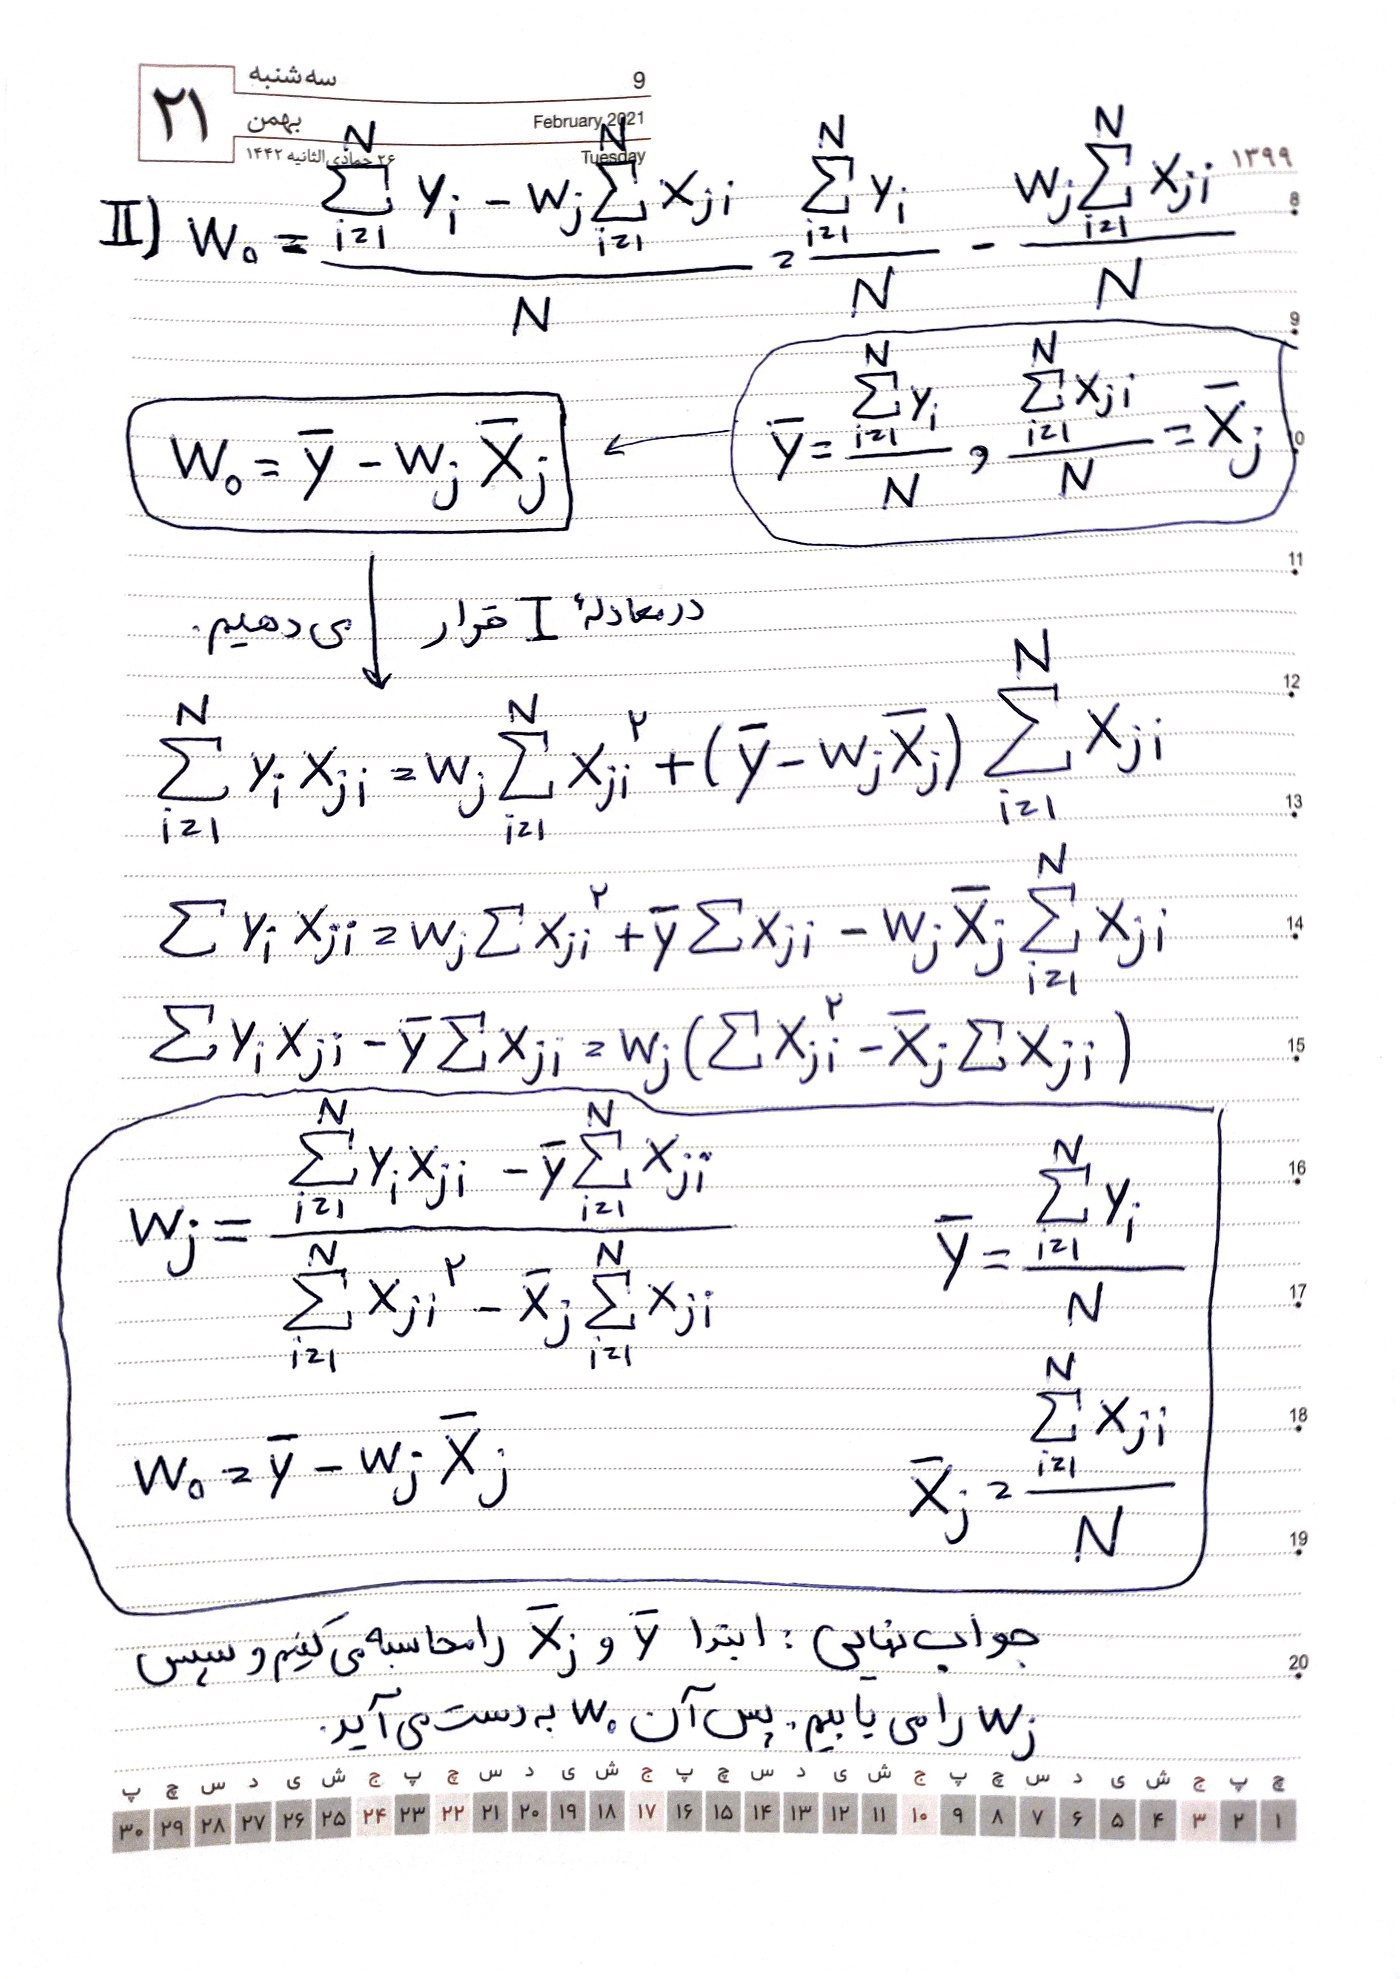 سه‌شنبه 9
۲۱ بهمن February 2021
۲۶ جمادی الثانیه ۱۴۴۲ Tuesday ۱۳۹۹
8
II) W₀ = (∑_{i=1}^{N} y_i − w_j ∑_{i=1}^{N} x_{ji}) / N = (∑_{i=1}^{N} y_i) / N − (w_j ∑_{i=1}^{N} x_{ji}) / N
9
W₀ = ȳ − w_j X̄_j ← ȳ = (∑_{i=1}^{N} y_i) / N , (∑_{i=1}^{N} x_{ji}) / N = X̄_j
11
در معادلهٔ I قرار می‌دهیم.
12
∑_{i=1}^{N} y_i x_{ji} = w_j ∑_{i=1}^{N} x_{ji}^۲ + (ȳ − w_j X̄_j) ∑_{i=1}^{N} x_{ji}
13
∑ y_i x_{ji} = w_j ∑ x_{ji}^۲ + ȳ ∑ x_{ji} − w_j X̄_j ∑_{i=1}^{N} x_{ji}
14
∑ y_i x_{ji} − ȳ ∑ x_{ji} = w_j (∑ x_{ji}^۲ − X̄_j ∑ x_{ji})
15
16
w_j = (∑_{i=1}^{N} y_i x_{ji} − ȳ ∑_{i=1}^{N} x_{ji}) / (∑_{i=1}^{N} x_{ji}^۲ − x̄_j ∑_{i=1}^{N} x_{ji}) ȳ = (∑_{i=1}^{N} y_i) / N
17
18
W₀ = ȳ − w_j X̄_j X̄_j = (∑_{i=1}^{N} x_{ji}) / N
19
جواب نهایی : ابتدا ȳ و X̄_j را محاسبه می‌کنیم و سپس
20
w_j را می یابیم. پس آن w₀ به دست می‌آید.
چ پ ج ش ی د س چ پ ج ش ی د س چ پ ج ش ی د س چ پ ج ش ی د س چ پ
۱ ۲ ۳ ۴ ۵ ۶ ۷ ۸ ۹ ۱۰ ۱۱ ۱۲ ۱۳ ۱۴ ۱۵ ۱۶ ۱۷ ۱۸ ۱۹ ۲۰ ۲۱ ۲۲ ۲۳ ۲۴ ۲۵ ۲۶ ۲۷ ۲۸ ۲۹ ۳۰